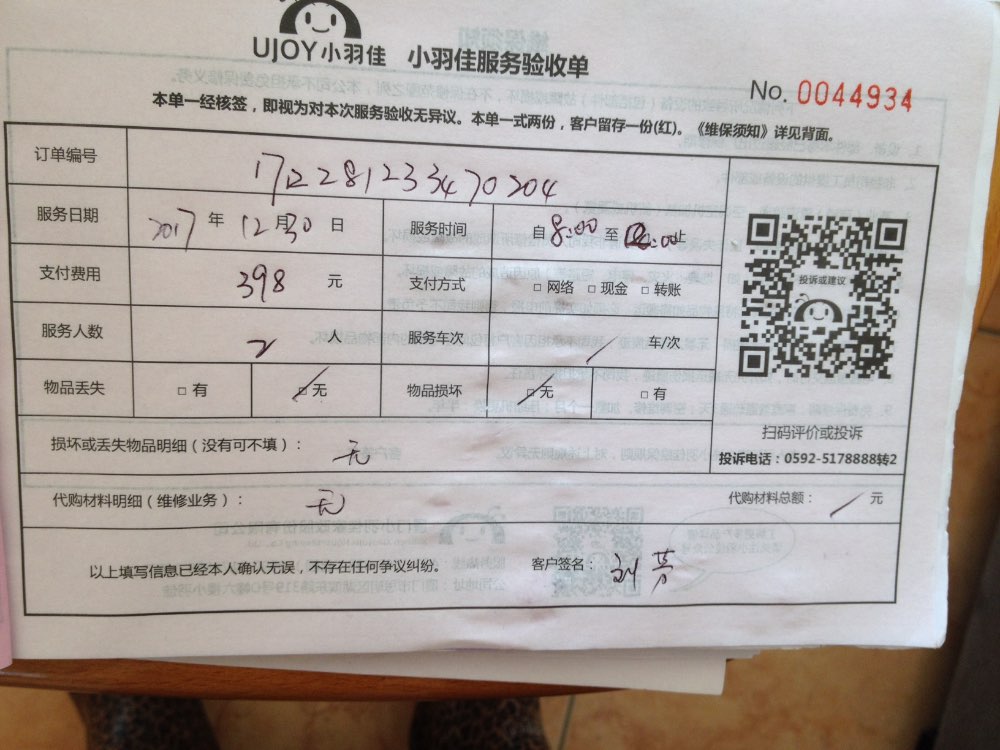 UJOY小羽佳 小羽佳服务验收单
No. 0044934
本单一经核签，即视为对本次服务验收无异议。本单一式两份，客户留存一份(红)。《维保须知》详见背面。
订单编号 1712281233470204
服务日期 2017 年 12 月 30 日 服务时间 自 8:00 至 :00止
支付费用 398 元 支付方式 □ 网络 □ 现金 □ 转账
投诉或建议
服务人数 2 人 服务车次 / 车/次
物品丢失 □ 有 □ 无 物品损坏 □ 无 □ 有
扫码评价或投诉
损坏或丢失物品明细（没有可不填）： 无
投诉电话：0592-5178888转2
代购材料明细（维修业务）： 无 代购材料总额： / 元
以上填写信息已经本人确认无误，不存在任何争议纠纷。 客户签名： 刘芳